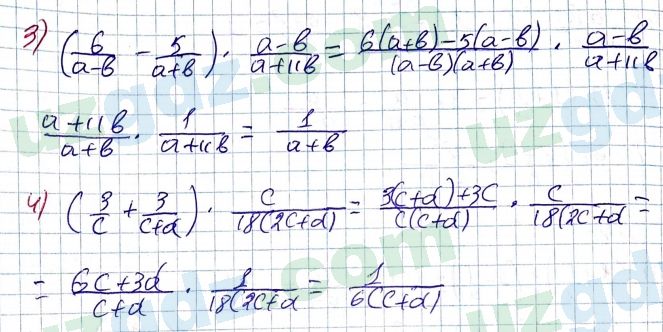 3) (6/(a-b) - 5/(a+b)) · (a-b)/(a+11b) = (6(a+b)-5(a-b))/((a-b)(a+b)) · (a-b)/(a+11b)
(a+11b)/(a+b) · 1/(a+11b) = 1/(a+b)
4) (3/c + 3/(c+d)) · c/(18(2c+d)) = (3(c+d)+3c)/(c(c+d)) · c/(18(2c+d =
= (6c+3d)/(c+d) · 1/(18(2c+d = 1/(6(c+d)
uzgdz.com